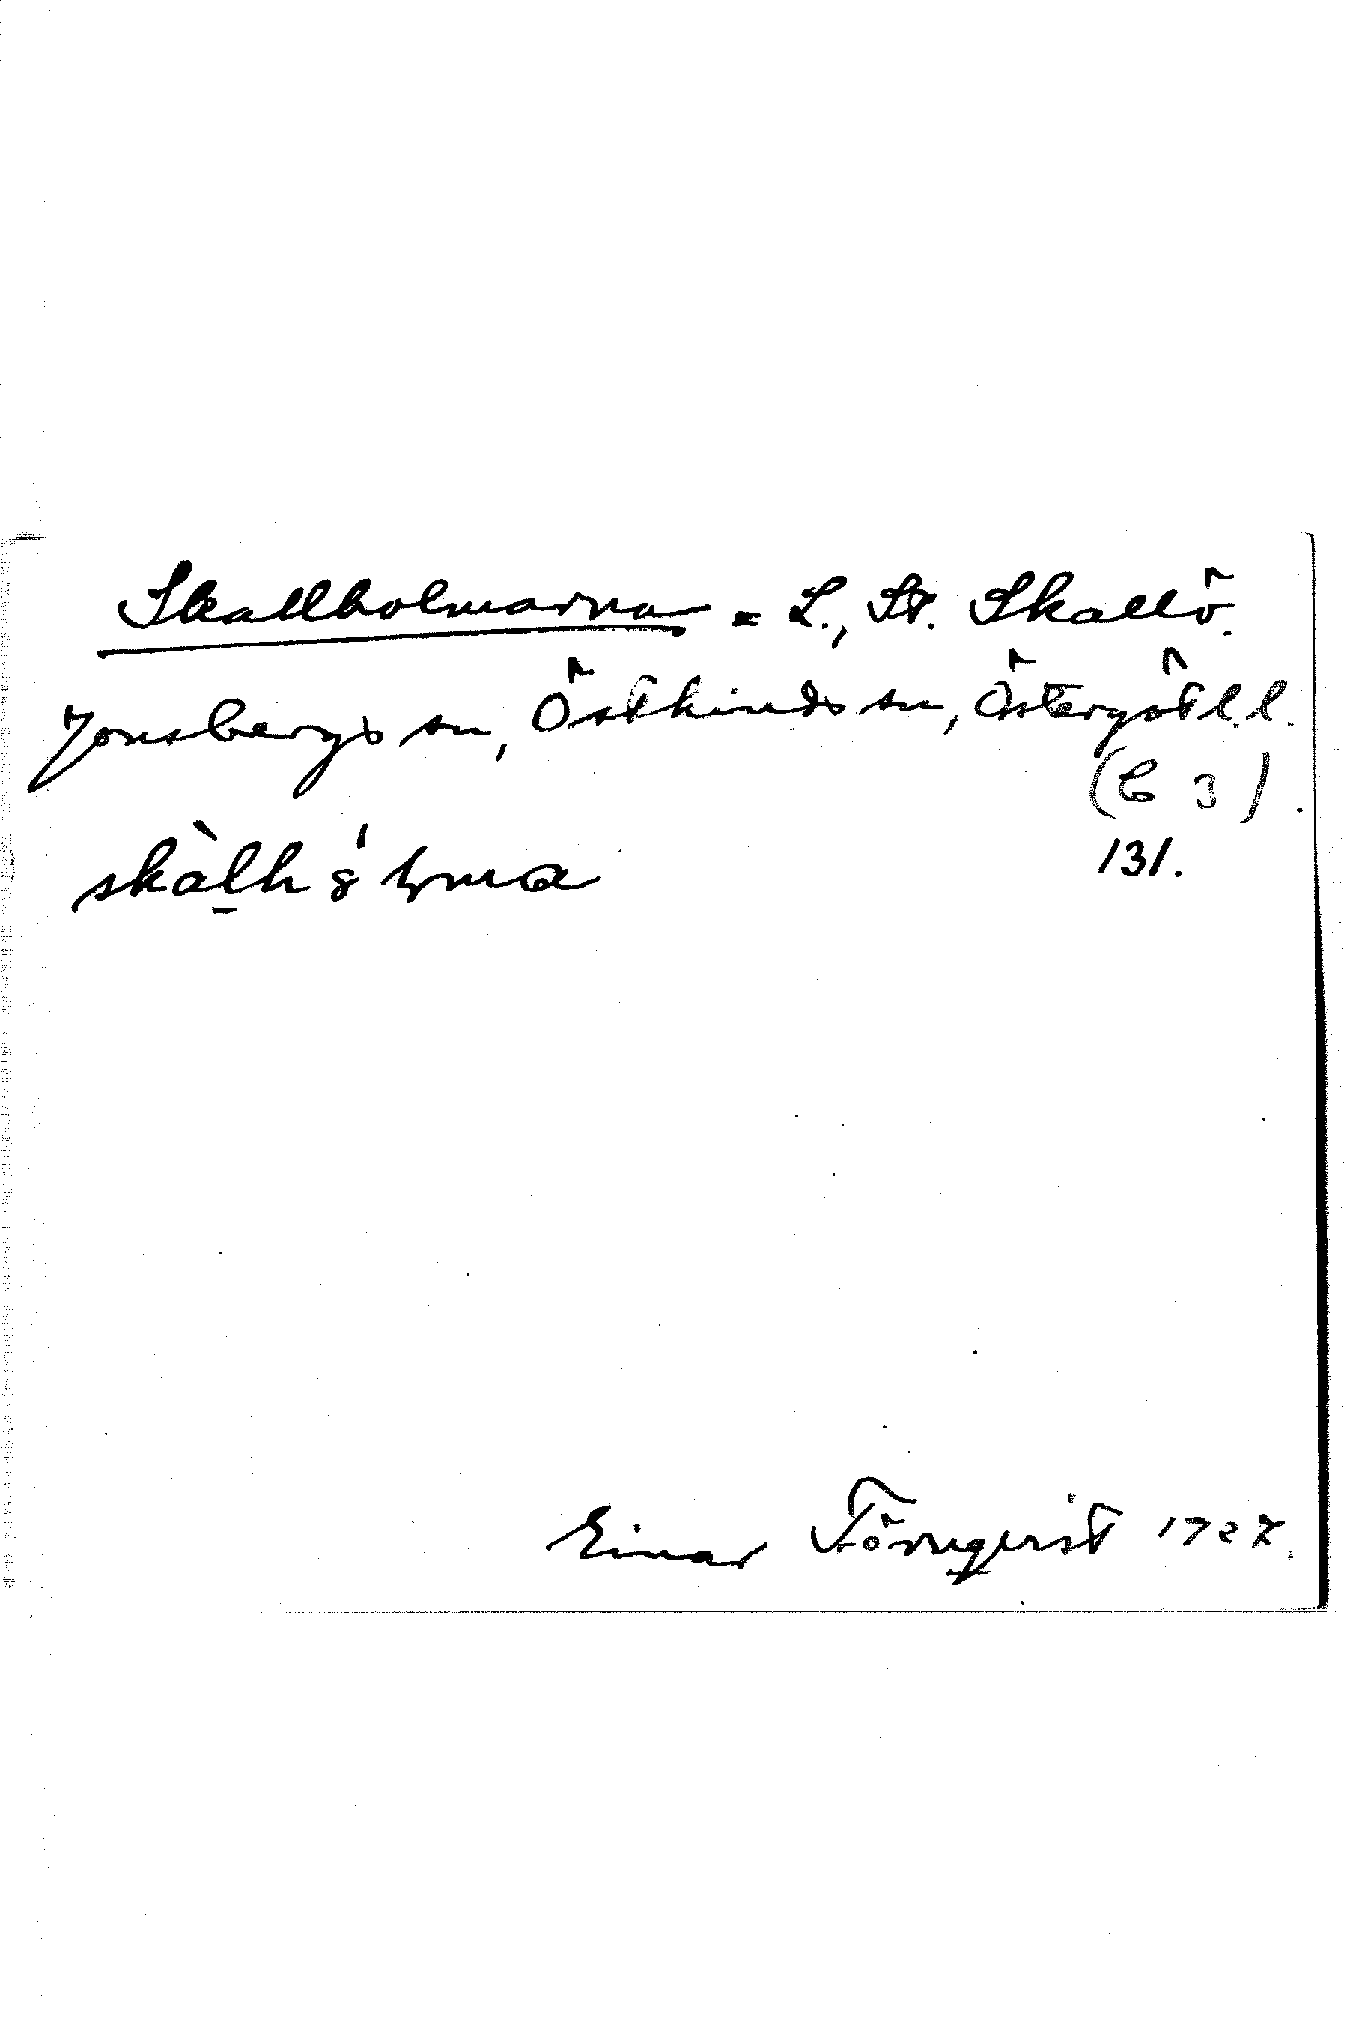 Skallholmarna = L., St. Skallö.
Jonsbergs sn, Östkinds sn, Östergötl. l.
(C 3).
skàlh 131.
Einar Törnqvist 1927.